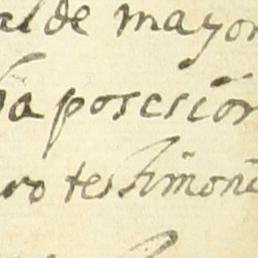 al de mayor
a posesión
ro testimoni